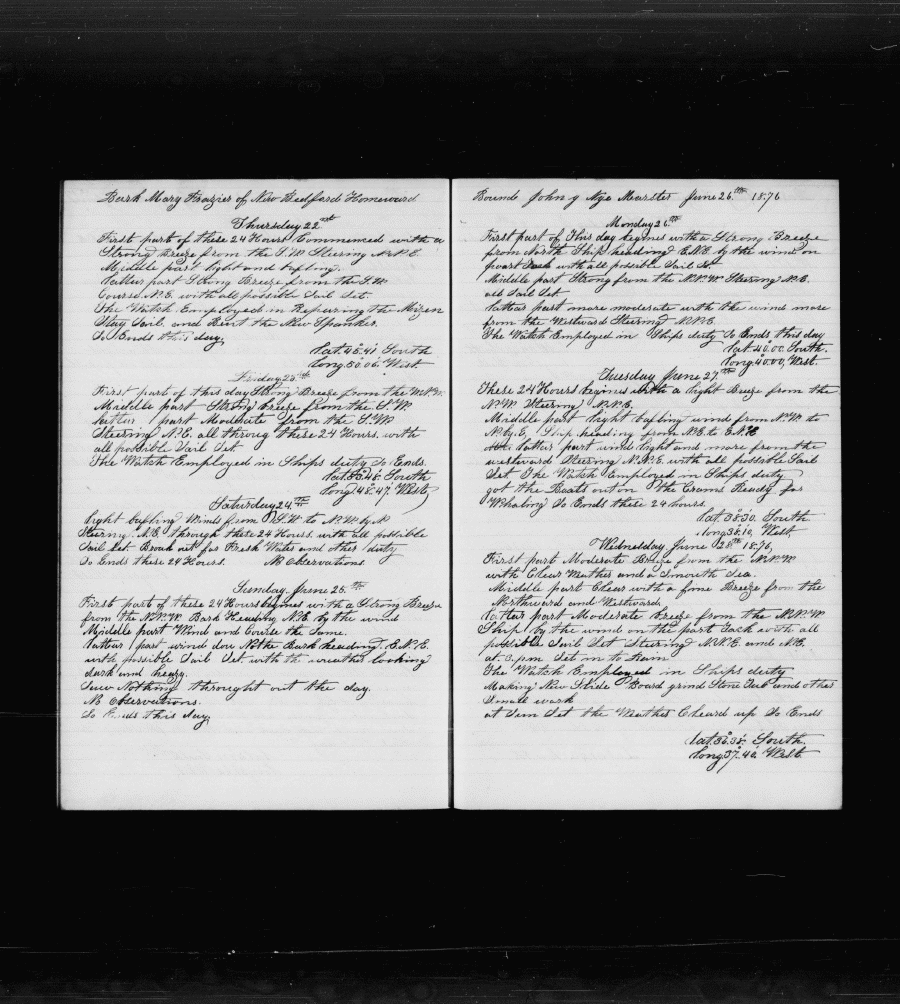 Bark Mary Frazier of New Bedford Homeward
Thursday 22nd
First part of these 24 Hours Commenced with a
Strong Breeze from the S.W. Steering N.N.E.
Middle part light and bafling.
Latter part Strong Breeze from the S.W.
Course N.E. with all possible Sail Set.
The Watch Employed in Repairing the Mizen
Stay Sail. and Bent the New Spanker.
So Ends this day,
Lat. 45.41 South
Long. 50.06. West.
Friday 23th
First part of this day Strong Breeze from the W.N.W.
Middle part Strong breeze from the S.W.
Latter part Moderate from the S.W.
Steering N.E. all throug these 24 Hours. with
all possible Sail Set.
The Watch Employed in Ships duty So Ends.
Lat. 43.48. South
Long. 48.47. West,
Saturday 24th
Light bafling Winds from S.W. to N.W. by N
Steering N.E. through these 24 Hours. with all possible
Sail Set. Broak out for Fresh Water and other duty
So Ends these 24 Hours. No Observations.
Sunday June 25.th
First part of these 24 Hours begines with a Strong Breeze
from the N.N.W. Bark Heading N.E. by the wind
Middle part Wind and Course the Same.
Latter part wind don North Bark heading. E.N.E.
with possible Sail Set with th weather looking
dark and heavy.
Saw Nothing throught out the day.
No Observations.
So Ends this day,
Bound John Nye Marster June 26th 1876
Monday 26th
First part of This day begines with a Strong Breeze
from North Ship heading E.N.E. by the wind on
poart Tack with all possible Sail So.
Middle part Strong from the N.N.W. Steering N.E.
all Sail Set.
Latter part more moderate with the wind more
from the Westward Steering N.N.E.
The Watch Employed in Ships duty So Ends this day
Lat. 40.00. South.
Long. 40.00, West.
Tuesday June 27th
These 24 Hours begines with a light Breeze from the
N.W. Steering N.N.E.
Middle part light bafling wind from N.W. to
N. by E, Ship heading from N.E. to E.N.E
latter part wind light and more from the
westward Steering N.N.E. with all possible Sail
Set The Watch Employed in Ships duty
got the Boats out on the Crains Ready for
Whaling So Ends these 24 hours.
Lat. 38.30. South
Long. 38.10, West,
Wednesday June 28th 1876,
First part Moderate Breeze from the N.N.W
with Clear Weather and a Smooth Sea.
Middle part Clear with a fine Breeze from the
Northward and Westward
Latter part Moderate breeze from the N.N.W.
Ship by the wind on the port Tack with all
possible Sail Set Steering N.N.E. and N.E.
at 3. p.m Set in to Rain
The Watch Employed in Ships duty
Making New Slide Board grind Stone Tub and other
Small work
at Sun Set the Weather Cleard up So Ends
Lat. 36.38. South.
Long 37.40. West.